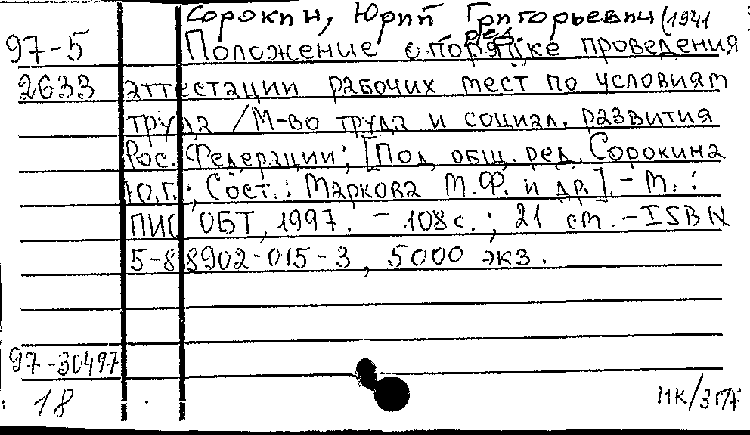 Сорокин, Юрий Григорьевич (1941
ред.
97-5 Положение о порядке проведения
2633 аттестации рабочих мест по условиям
труда / М-во труда и социал. развития
Рос. Федерации; [Под общ. ред. Сорокина
Ю.Г.; Сост.: Маркова М.Ф. и др.]. - М.:
ОБТ, 1997. - 108 с.; 21 cm. - ISBN
5-88902-015-3, 5000 экз.
97-30497
18